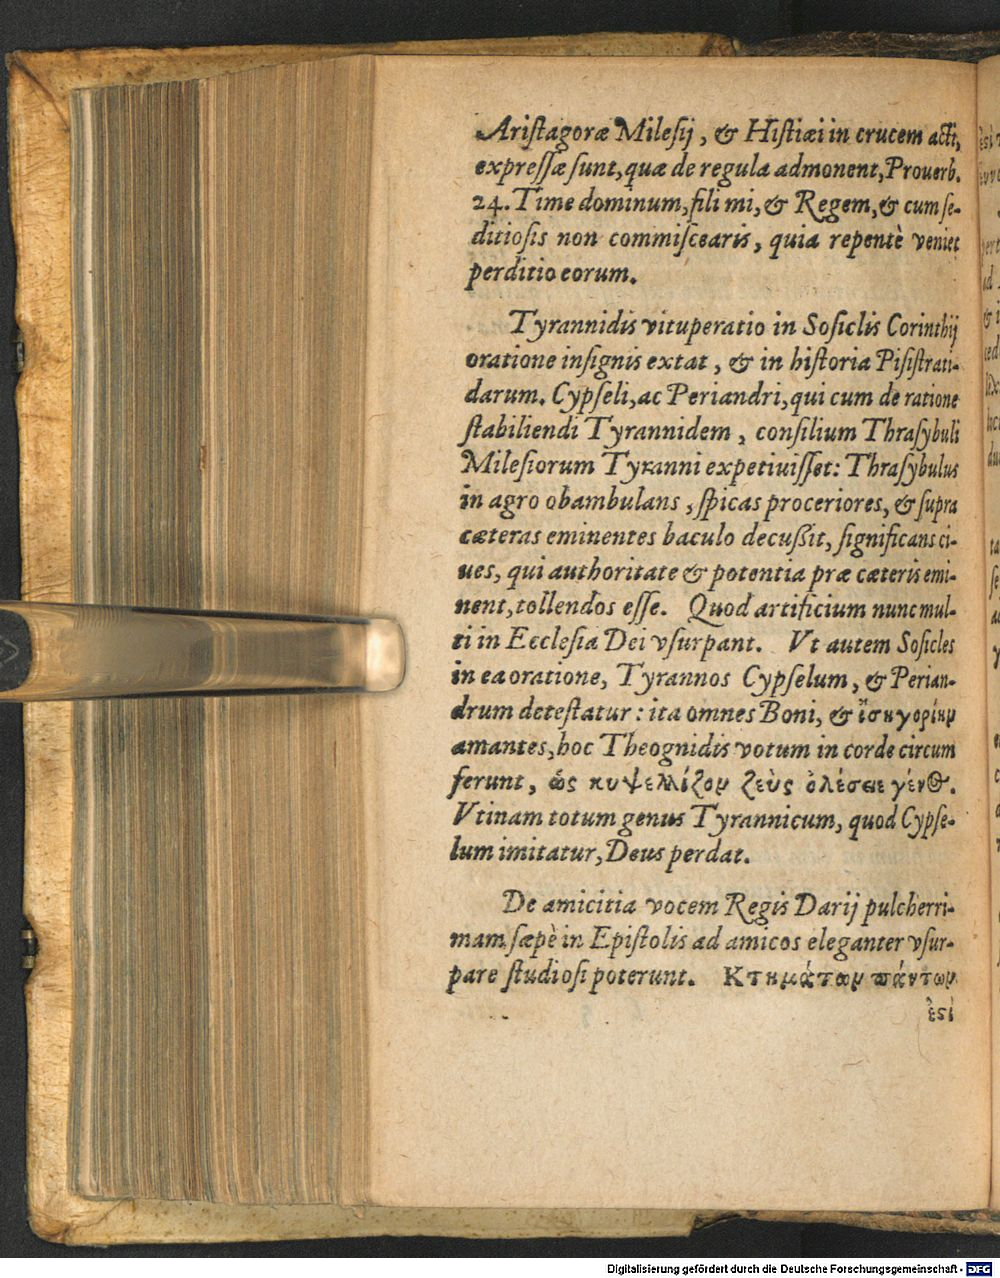 Aristagoræ Milesij, & Histiæi in crucem acti,
expressæ sunt, quæ de regula admonent, Prouerb.
24. Time dominum, fili mi, & Regem, & cum se-
ditiosis non commiscearis, quia repentè veniet
perditio eorum.
Tyrannidis vituperatio in Sosiclis Corinthij
oratione insignis extat, & in historia Pisistrati-
darum. Cypseli, ac Periandri, qui cum de ratione
stabiliendi Tyrannidem, consilium Thrasybuli
Milesiorum Tyranni expetiuisset: Thrasybulus
in agro obambulans, spicas proceriores, & supra
cæteras eminentes baculo decussit, significans ci-
ues, qui authoritate & potentia præ cæteris emi-
nent, tollendos esse. Quod artificium nunc mul-
ti in Ecclesia Dei vsurpant. Vt autem Sosicles
in ea oratione, Tyrannos Cypselum, & Perian-
drum detestatur: ita omnes Boni, & ἰσηγορίην
amantes, hoc Theognidis votum in corde circum
ferunt, ὡς κυψελλίζον ζεὺς ὀλέσειε γένος.
Vtinam totum genus Tyrannicum, quod Cypse-
lum imitatur, Deus perdat.
De amicitia vocem Regis Darij pulcherri-
mam sæpè in Epistolis ad amicos eleganter vsur-
pare studiosi poterunt. Κτημάτων πάντων
ἐστὶ
Digitalisierung gefördert durch die Deutsche Forschungsgemeinschaft - DFG